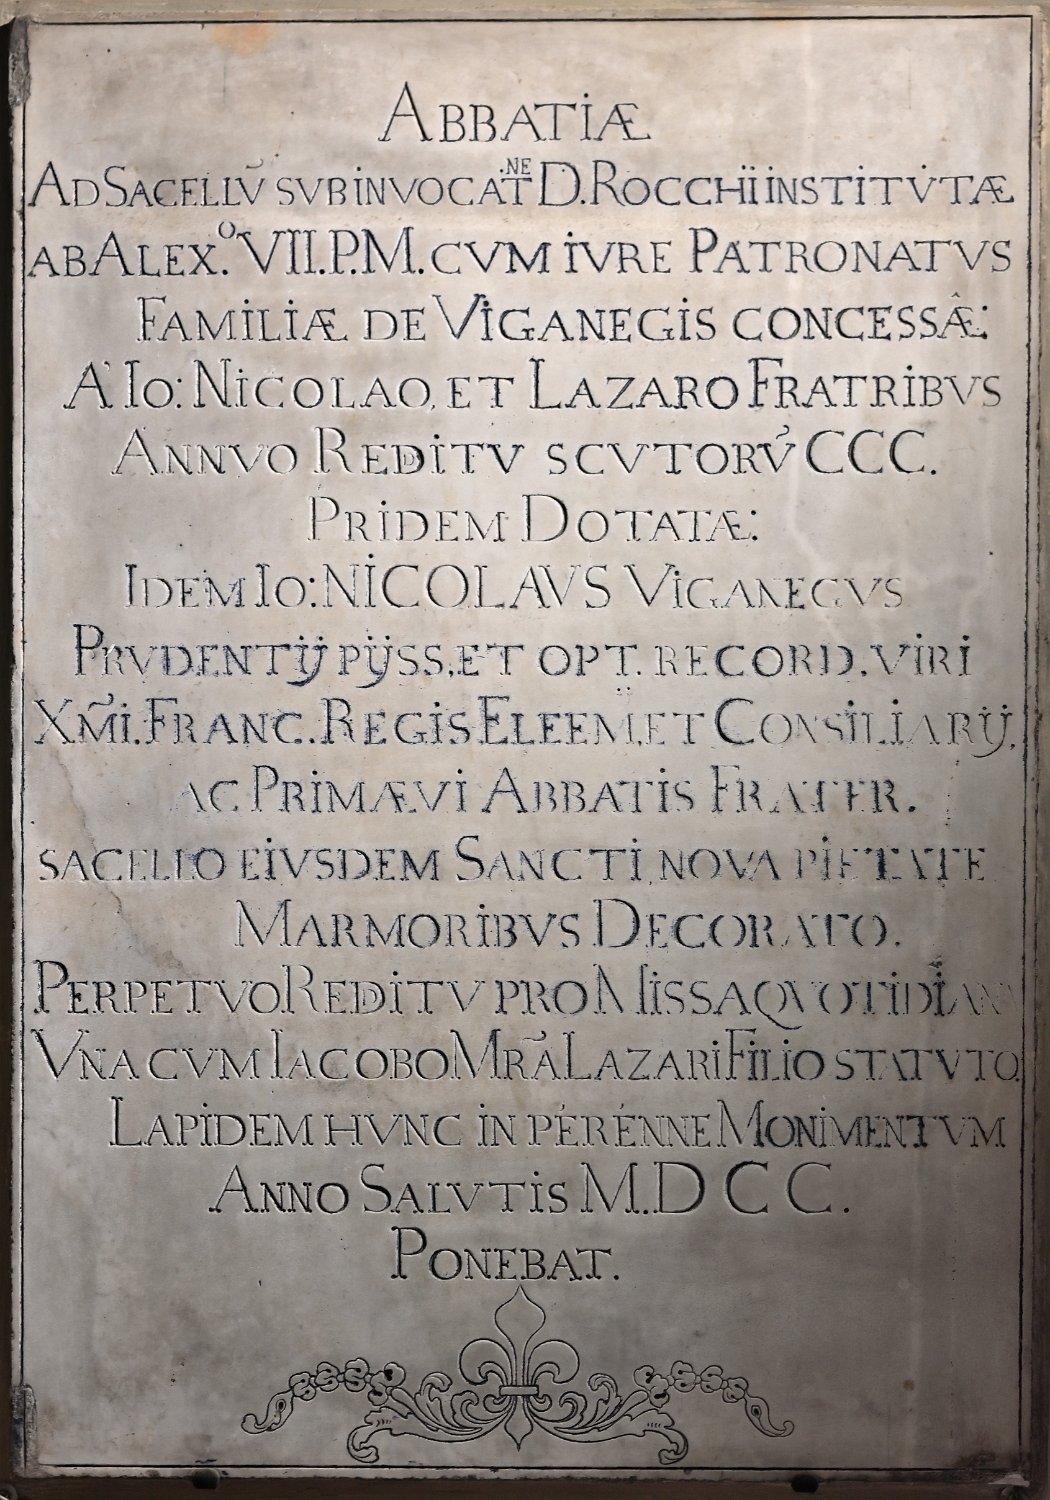 ABBATIÆ
AD SACELLŨ SUB INVOCAT.NE D. ROCCHI INSTITUTÆ
AB ALEX.O VII. P.M. CVM IVRE PATRONATVS
FAMILIÆ DE VIGANEGIS CONCESSÆ:
A IO: NICOLAO, ET LAZARO FRATRIBVS
ANNVO REDITV SCVTORṼ CCC.
PRIDEM DOTATÆ:
IDEM IO: NICOLAVS VIGANEGVS
PRVDENTIJ PIJSS. ET OPT. RECORD. VIRI
XM̃I. FRANC. REGIS ELEEM. ET CONSILIARIJ,
AC PRIMÆVI ABBATIS FRATER.
SACELLO EIVSDEM SANCTI, NOVA PIETATE
MARMORIBVS DECORATO.
PERPETVO REDITV PRO MISSA QVOTIDIANA
VNA CVM IACOBO MR̃A LAZARI FILIO STATVTO,
LAPIDEM HVNC IN PÉRÉNNE MONIMENTVM
ANNO SALVTIS M.DCC.
PONEBAT.